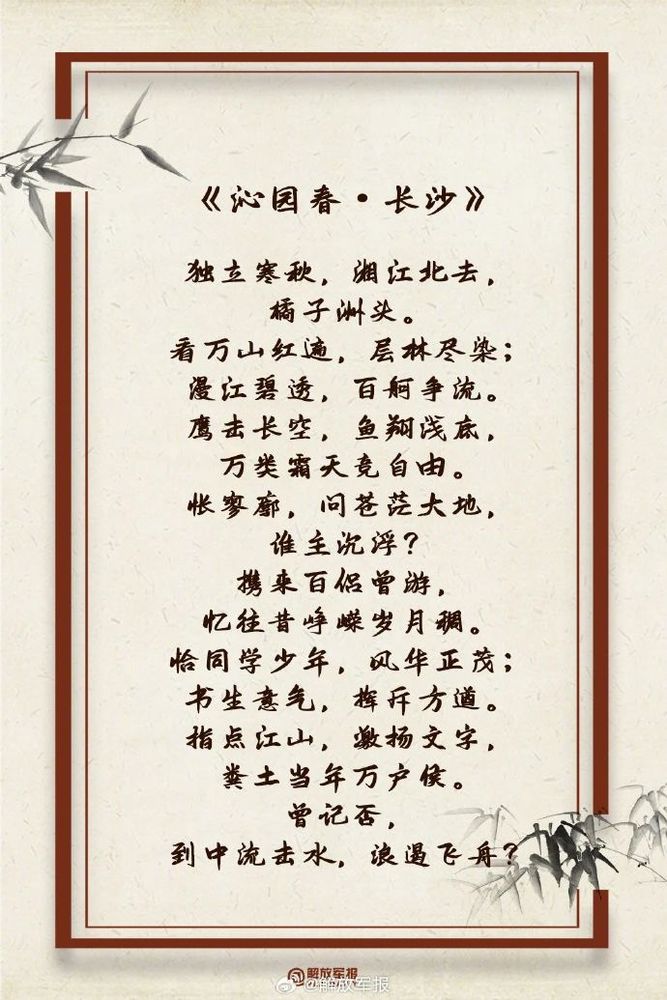 《沁园春·长沙》
独立寒秋，湘江北去，
橘子洲头。
看万山红遍，层林尽染；
漫江碧透，百舸争流。
鹰击长空，鱼翔浅底，
万类霜天竞自由。
怅寥廓，问苍茫大地，
谁主沉浮？
携来百侣曾游，
忆往昔峥嵘岁月稠。
恰同学少年，风华正茂；
书生意气，挥斥方遒。
指点江山，激扬文字，
粪土当年万户侯。
曾记否，
到中流击水，浪遏飞舟？
解放军报
@解放军报